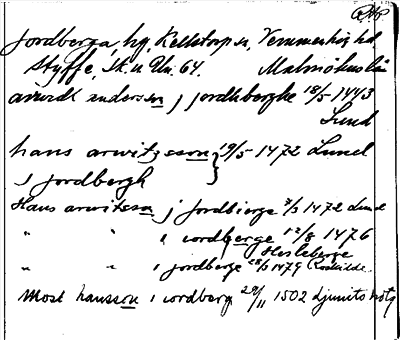 Jordberga, hg, Kellstorp sn, Vemmenhög hd.
Styffe, Sk. u. Un. 64. Malmöhus län
aruidt anderssen j jordhberghe 18/5 1443
Lund
hans arwitzsson 19/5 1472 Lund
j jordbergh
Hans arwitssn j jordbierge 7/3 1472 Lund
" " i iordberge 12/8 1476
Hesleberge
" " i jordberge 28/3 1479 Roskilde
Most hansson i iordberg 29/11 1502